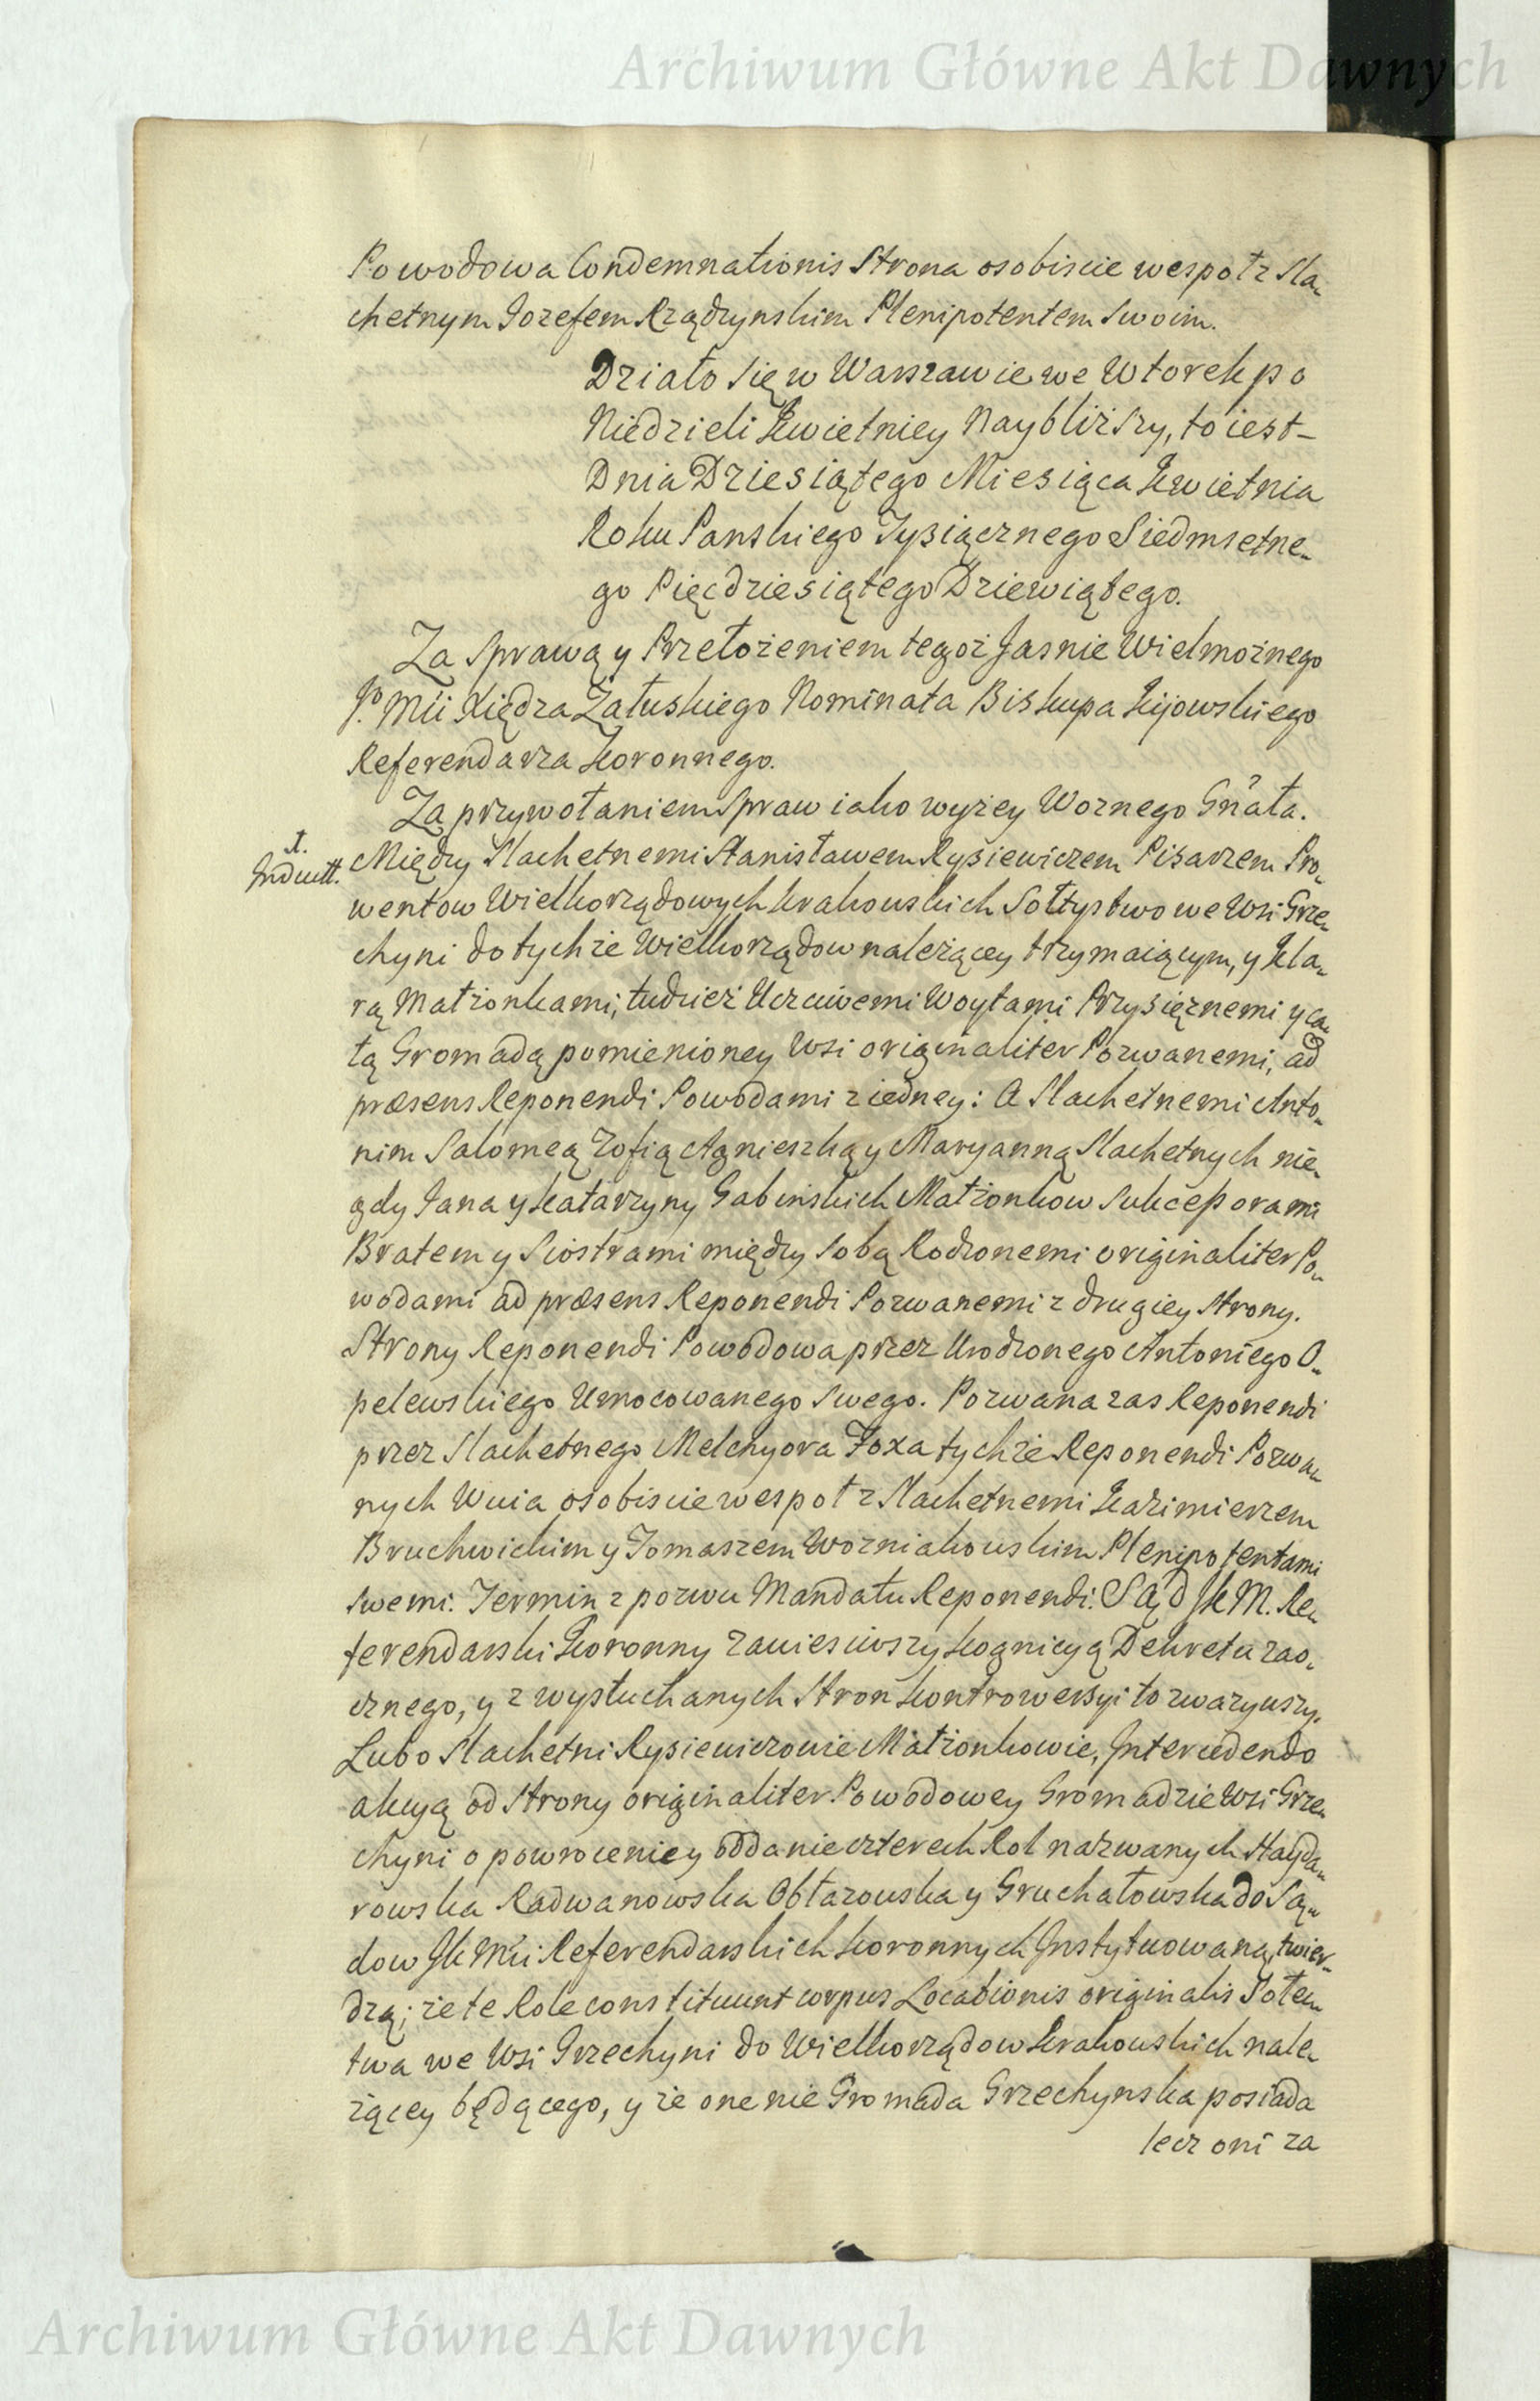 Archiwum Główne Akt Dawnych
Powodowa Condemnationis Strona osobiscie wespoł z Sla-
chetnym Jozefem Rządzynskim Plenipotentem Swoim.
Działo się w Warszawie we Wtorek po
Niedzieli Kwietniey Nayblizszy, to iest-
Dnia Dziesiątego Miesiąca Kwietnia
Roku Panskiego Tysiącznego Siedmsetne-
go Pięcdziesiątego Dziewiątego.
Za Sprawą y Przełożeniem tegoż Jasnie Wielmożnego
Jº Mci Xiędza Załuskiego Nominata Biskupa Kijowskiego
Referendarza Koronnego.
Za przywołaniem Spraw iako wyżey Woznego Gnāła.
t.
Indult.
Między Slachetnemi Stanisławem Rysiewiczem Pisarzem Pro-
wentow Wielkorządowych Krakowskich Sołtystwo we Wsi Grze-
chyni do tychże Wielkorządow należącey trzymaiącym, y Kla-
rą Małżonkami; tudzież Uczciwemi Woytami Przysiężnemi y ca-
łą Gromadą pomienioney Wsi originaliter Pozwanemi, ad
præsens Reponendi Powodami z iedney: A Slachetnemi Anto-
nim Salomeą Zofią Agnieszką y Maryanną Slachetnych nie-
gdy Jana y Katarzyny Gabinskich Małżonkow Sukcessorami
Bratem y Siostrami między Sobą Rodzonemi originaliter Po-
wodami ad præsens Reponendi Pozwanemi z drugiey Strony.
Strony Reponendi Powodowa przez Urodzonego Antoniego O-
pelewskiego Umocowanego Swego. Pozwana zas Reponendi
przez Slachetnego Melchyora Foxa tychże Reponendi Pozwa-
nych Wuia osobiscie wespoł z Slachetnemi Kazimierzem
Bruchwickim y Tomaszem Wozniakowskim Plenipotentami
Swemi. Termin z pozwu Mandatu Reponendi. Sąd JKM. Re-
ferendarski Koronny zawiesiwszy Kognicyą Dekretu zao-
cznego, y z wysłuchanych Stron Kontrowersyi to zważywszy.
Lubo Slachetni Rysiewiczowie Małżonkowie, Intercedendo
akcyą od Strony originaliter Powodowey Gromadzie Wsi Grze-
chyni o powrocenie y oddanie czterech Rol nazwanych Hayda-
rowska Radwanowska Obłazowska y Gruchałowska do Są-
dow JKMci Referendarskich Koronnych Instytuowaną, twier-
dzą; że te Role constituunt corpus Locationis originalis Sołec-
twa we Wsi Grzechyni do Wielkorządow Krakowskich nale-
żącey będącego, y że one nie Gromada Grzechynska posiada
lecz oni za
Archiwum Główne Akt Dawnych